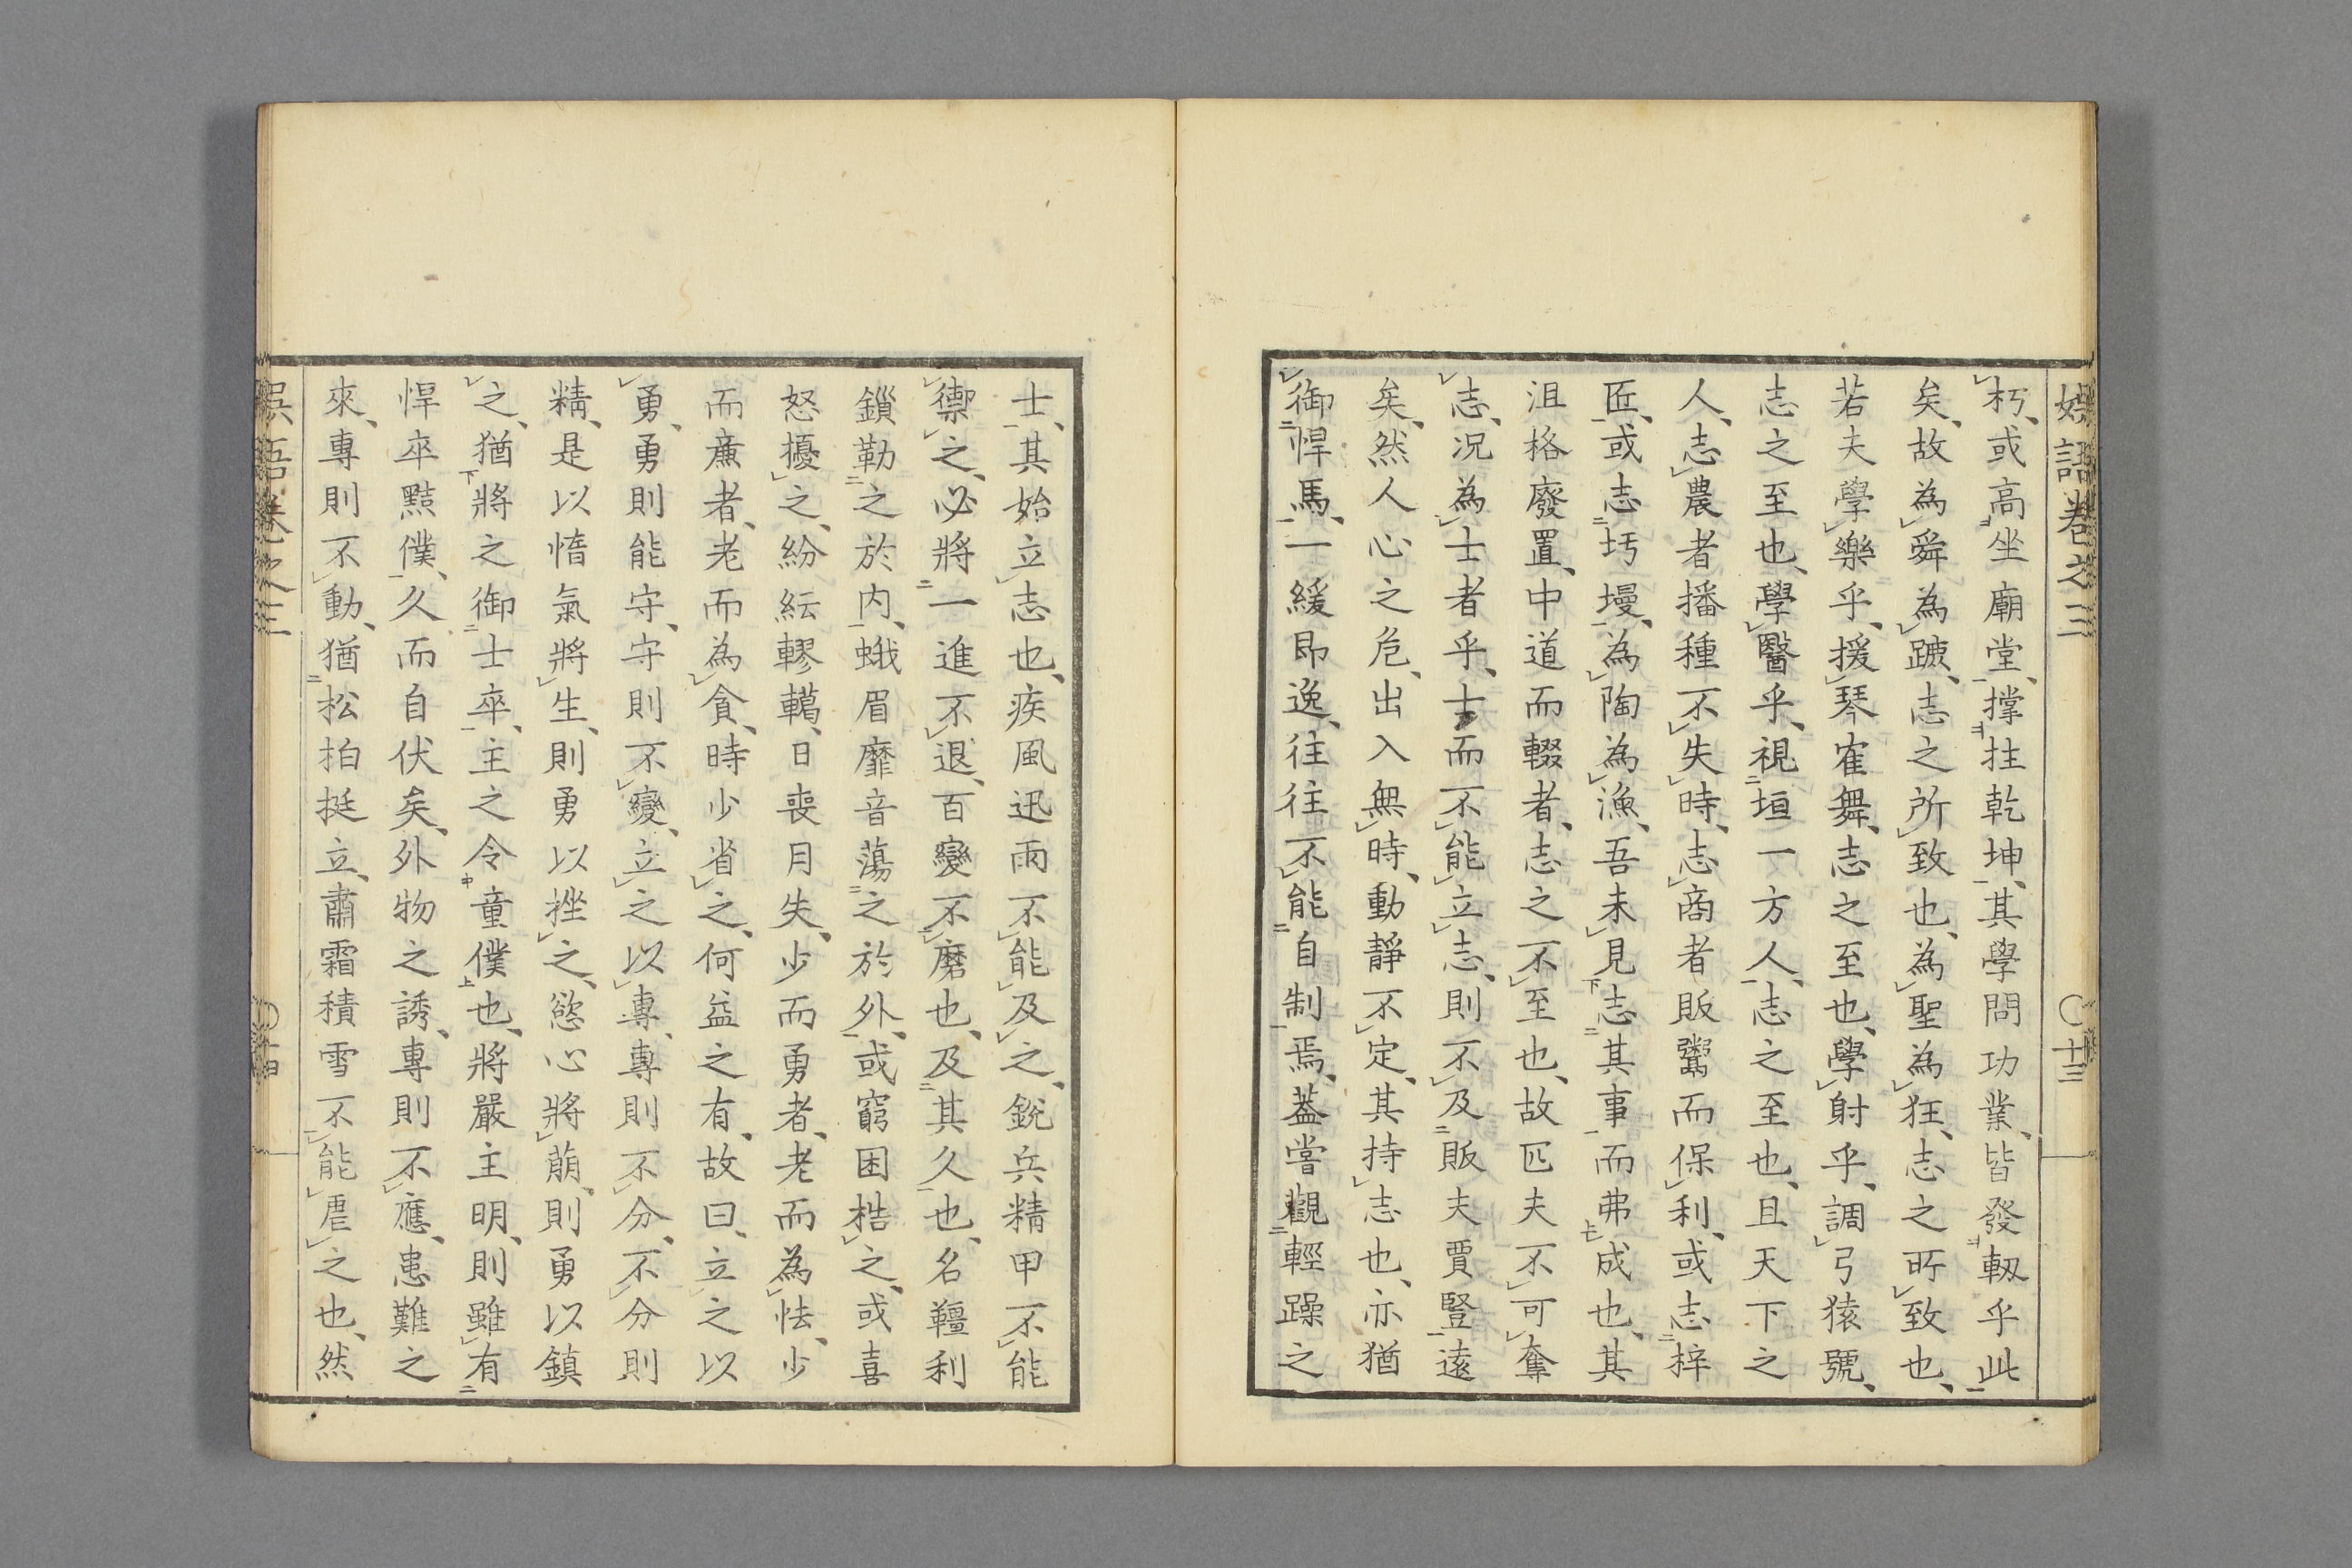 朽、或高坐廟堂、撑拄乾坤、其學問功業、皆發軔乎此
矣、故為舜為蹠、志之所致也、為聖為狂、志之所致也、
若夫學樂乎、援琴寉舞、志之至也、學射乎、調弓猿號、
志之至也、學醫乎、視垣一方人、志之至也、且天下之
人、志農者播種不失時、志商者販鬻而保利、或志梓
匠、或志圬墁、為陶為漁、吾未見志其事而弗成也、其
沮格廢置、中道而輟者、志之不至也、故匹夫不可奪
志、况為士者乎、士而不能立志、則不及販夫賈豎遠
矣、然人心之危、出入無時、動靜不定、其持志也、亦猶
御悍馬、一緩即逸、往往不能自制焉、蓋嘗觀輕躁之
語卷之三
〇十三
士、其始立志也、疾風迅雨不能及之、銳兵精甲不能
禦之、必將一進不退、百變不磨也、及其久也、名韁利
鎖勒之於内、蛾眉靡音蕩之於外、或窮困梏之、或喜
怒擾之、紛紜轇轕、日喪月失、少而勇者、老而為怯、少
而廉者、老而為貪、時少省之、何益之有、故曰、立之以
勇、勇則能守、守則不變、立之以專、專則不分、不分則
精、是以惰氣將生、則勇以挫之、慾心將萠、則勇以鎮
之、猶將之御士卒、主之令童僕也、將嚴主明、則雖有
悍卒黠僕、久而自伏矣、外物之誘、專則不應、患難之
來、專則不動、猶松柏挺立、肅霜積雪不能虐之也、然
語卷之三